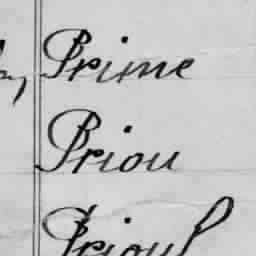 Prime
Priou
Prioul